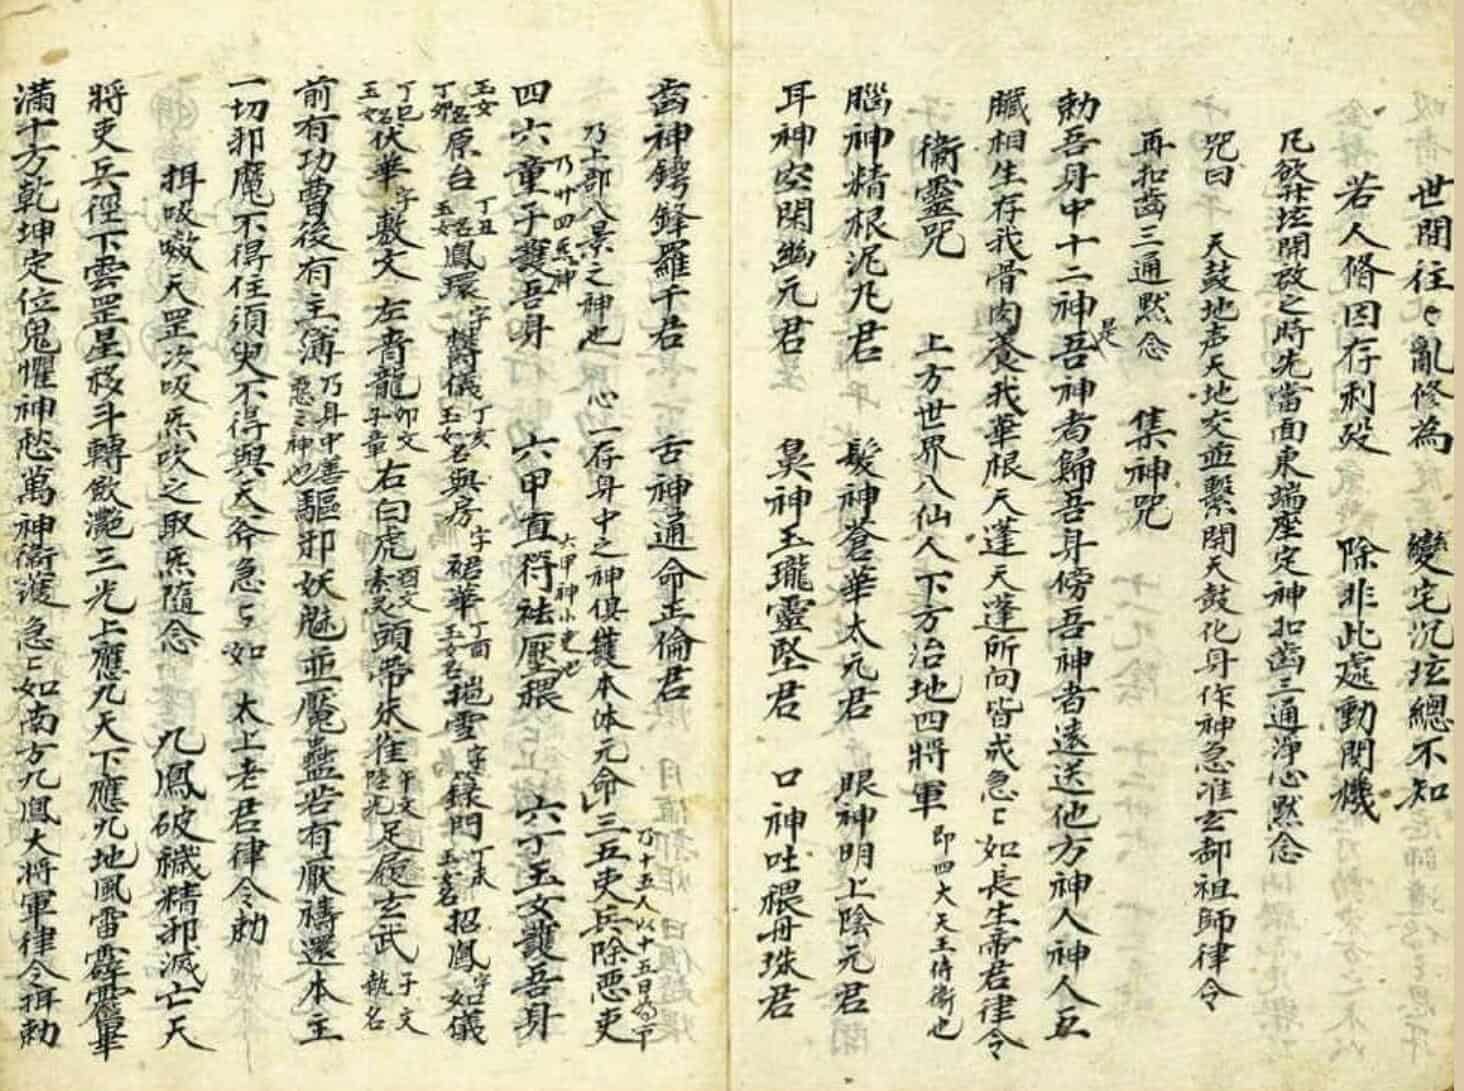 世間往〻亂修為　變宅沉垓總不知
若人脩因存利殁　除非此處動関機
凡欲升垓開啟之時先當面東端座定神扣齒三通淨心默念
咒曰　天鼓地声天地交並繫開天鼓化身作神急准玄都祖師律令
再扣齒三通默念　集神咒
勅吾身中十二神是吾神者歸吾身傍吾神者遠送他方神人神人五
臟相生存我骨肉養我華根天蓬天蓬所向皆戎急〻如長生帝君律令
衞靈咒　上方世界八仙人下方治地四將軍即四大天王侍衞也
腦神精根泥丸君　髮神蒼華太元君　眼神明上陰元君
耳神空閑幽元君　鼻神玉瓏靈堅君　口神吐䙟丹珠君
齒神鍔鋒羅千君　舌神通命正倫君
乃上部八景之神也　心一存身中之神俱護本体元命三五吏兵除惡吏乃十五人以十五日為一节
四六童子護吾身乃廿四炁神　六甲直符祛壓䙟六甲神小吏也　六丁玉女護吾身
玉女丁卯名原台丁丑玉女名鳳環字欝儀丁亥玉女名輿房字裙華丁酉玉女名搓雪字錄門丁未玉女名招鳳字如儀
丁巳玉女名伏華字敷文　左青龍卯文子章右白虎酉文素元頭帶朱雀午文陵光足履玄武子文執名
前有功曹後有主簿乃身中善惡之神也驅邪妖魅並魘蠱若有厭禱還本主
一切邪魔不得住須臾不得與天爷急〻如　太上老君律令勅
揖吸噀天罡次吸炁吹之取炁隨念　九鳳破穢精邪滅亡天
將吏兵徑下雲罡星移斗轉飲灔三光上應九天下應九地風雷霹靂畢
滿十方乾坤定位鬼懼神愁萬神衞護急〻如南方九鳳大将軍律令揖勅